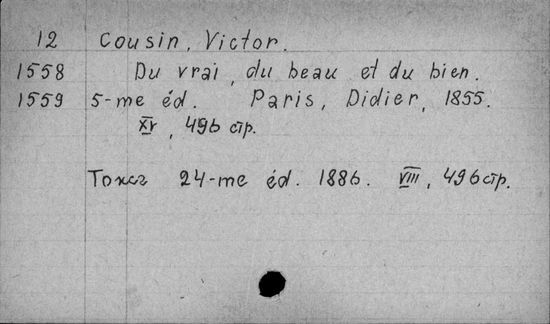 12 Cousin, Victor.
1558 Du vrai, du beau et du bien.
1559 5-me éd. Paris, Didier, 1855.
XV, 496 стр.
24-me éd. 1886. VIII, 496 стр.